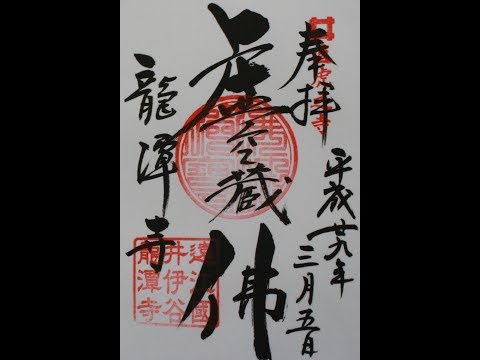 奉拝
平成廿九年
三月五日
虚空蔵佛
龍潭寺
遠江國
井伊谷
龍潭寺